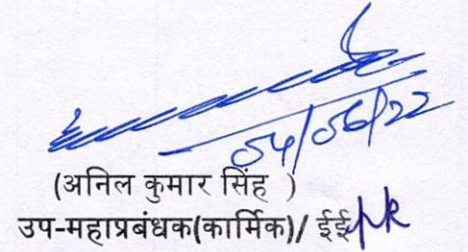 04/06/22
(अनिल कुमार सिंह )
उप-महाप्रबंधक(कार्मिक)/ ईई